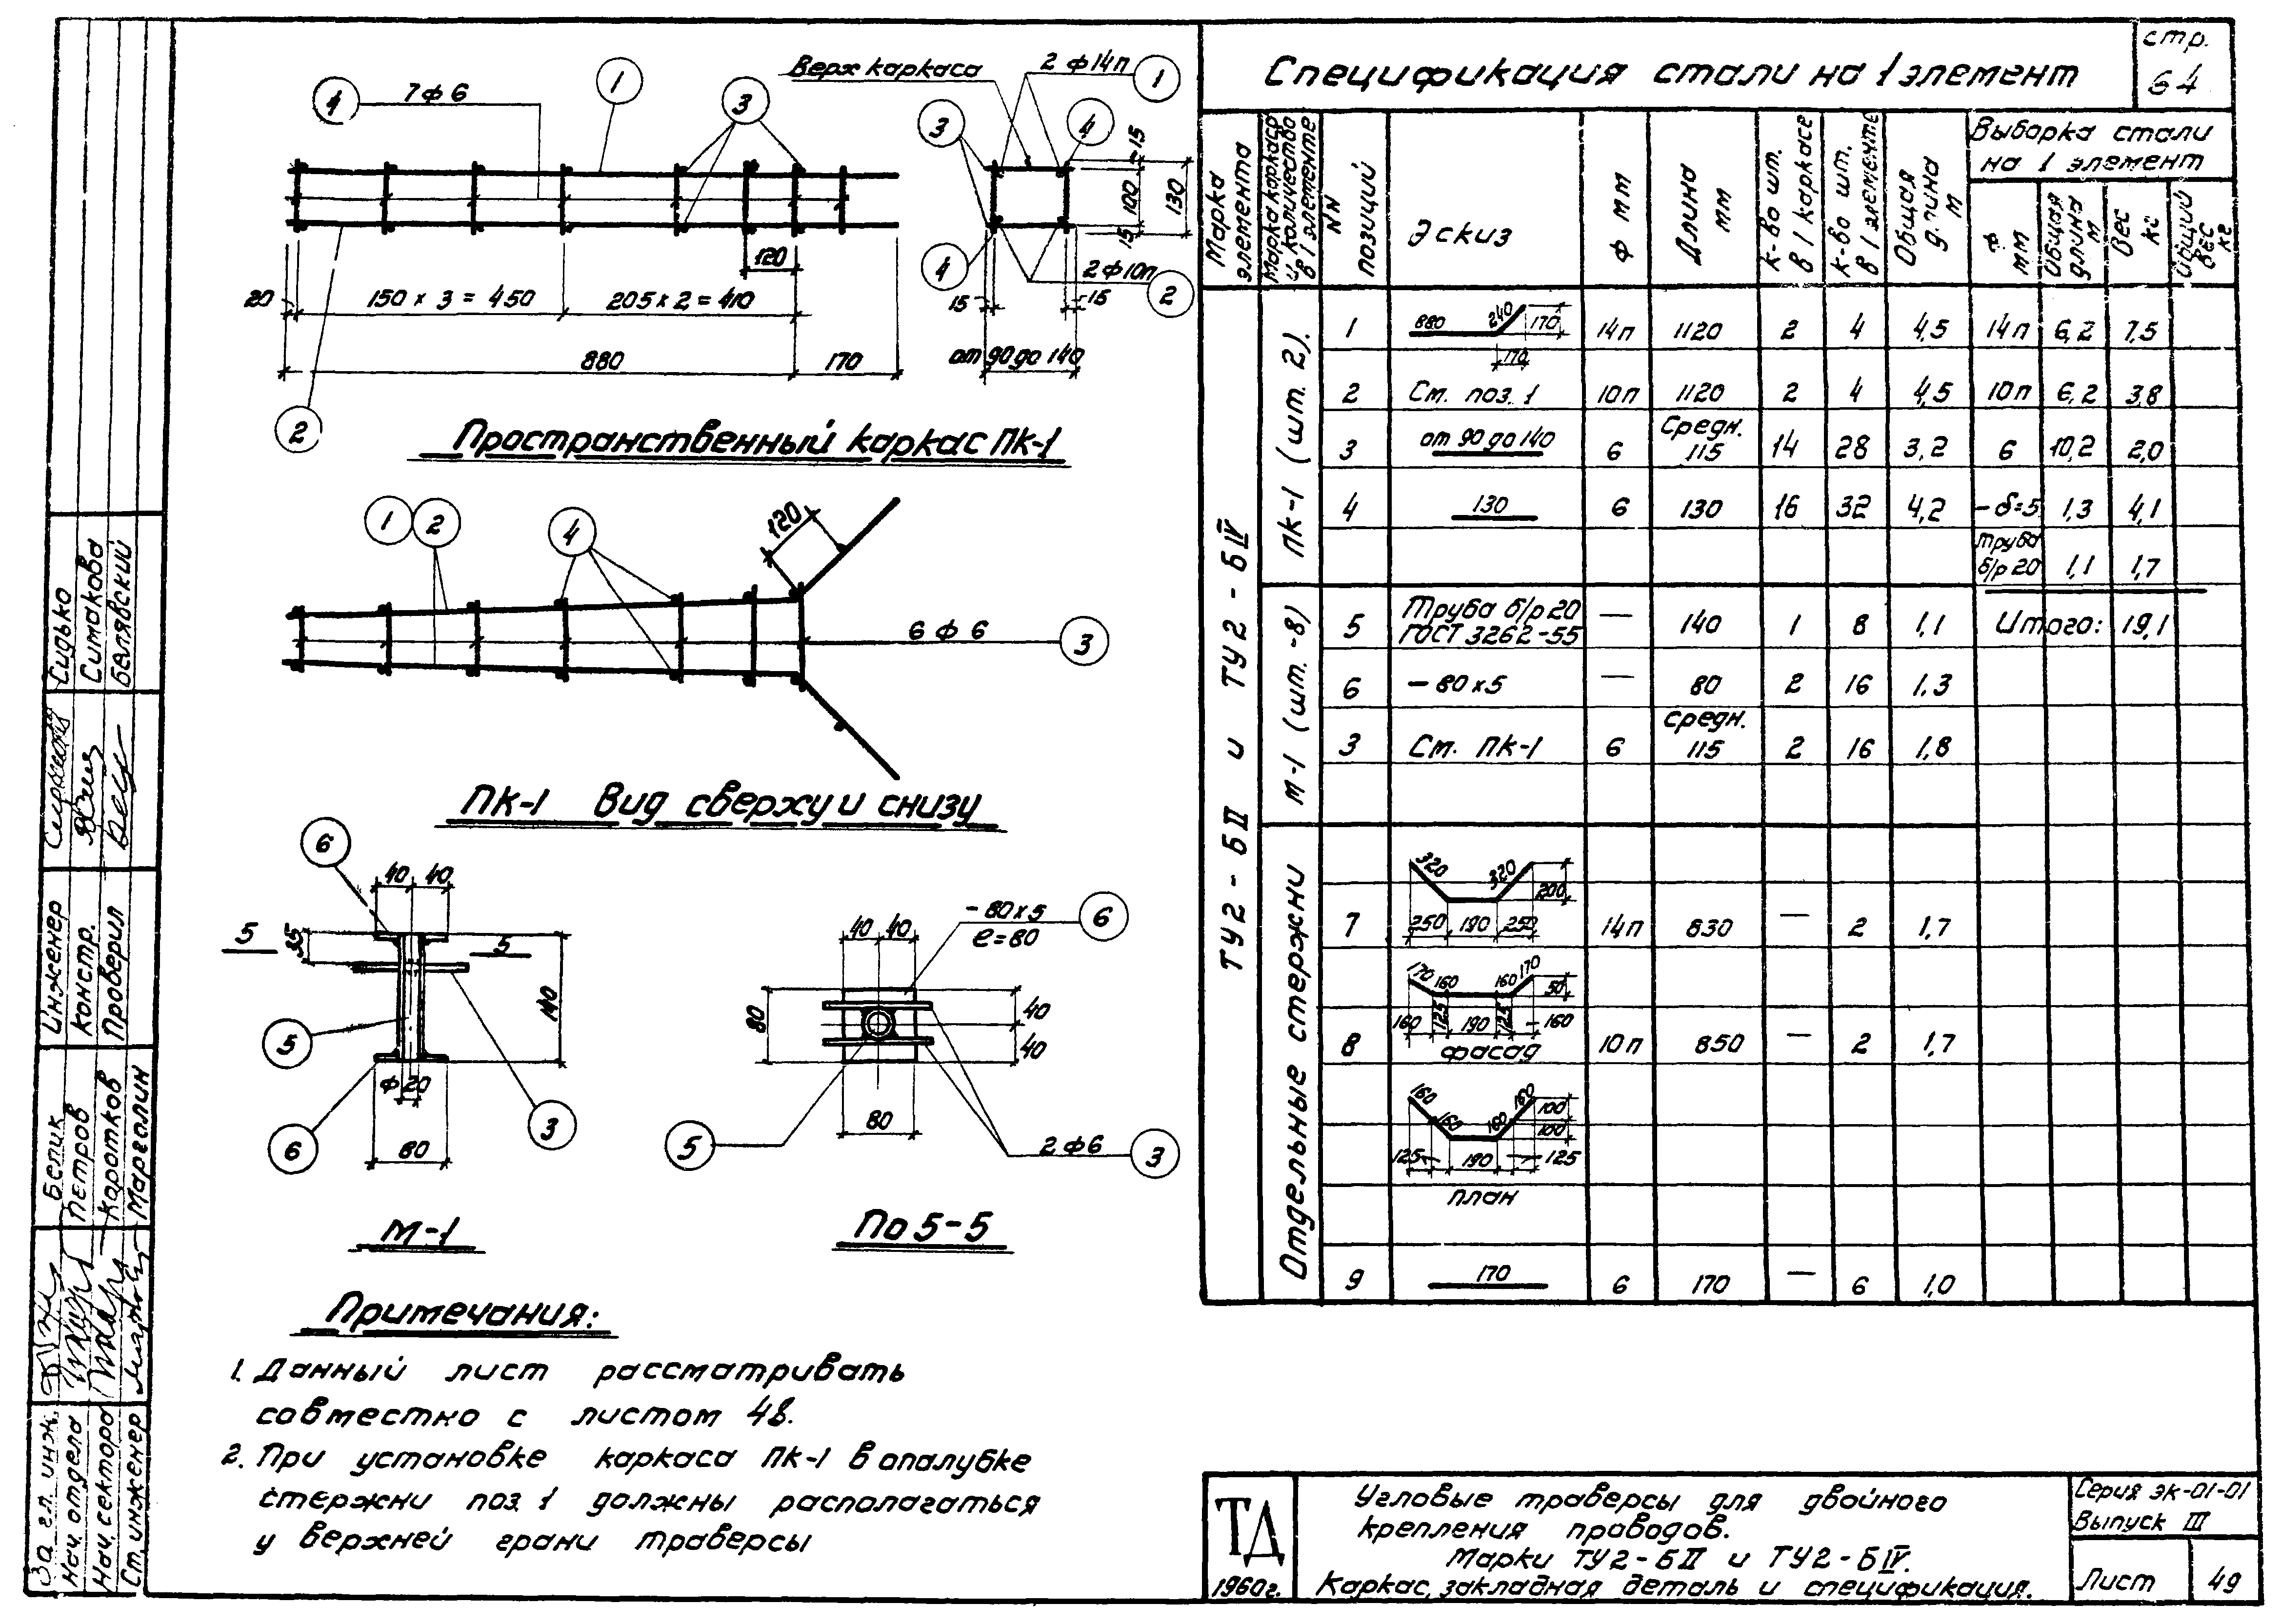 Верх каркаса
2 ф14п
1
4
7ф6
1
3
3
4
15
100
130
15
120
20
150 x 3 = 450
205 x 2 = 410
4
2ф10п
2
15
15
880
170
от 90 до 140
2
Пространственный каркас ПК-1
1
2
4
120
6 ф 6
3
ПК-1 Вид сверху и снизу
6
40
40
5
5
35
140
5
ф 20
3
6
80
М-1
- 80 x 5
e = 80
6
40
40
80
40
40
80
5
2ф6
3
По 5-5
Примечания:
1. Данный лист рассматривать
совместно с листом 48.
2. При установке каркаса ПК-1 в опалубке
стержни поз. 1 должны располагаться
у верхней грани траверсы
Спецификация стали на 1 элемент
стр.
64
Марка элемента
Марка каркаса и количество в 1 элементе
NN позиций
Эскиз
ф мм
Длина мм
К-во шт. в 1 каркасе
К-во шт. в 1 элементе
Общая длина м
Выборка стали
на 1 элемент
ф мм
Общая длина м
Вес кг
Общий вес кг
ТУ2-БII и ТУ2-БIV
ПК-1 (шт. 2).
1 880 240 170 170 14п 1120 2 4 4,5 14п 6,2 7,5
2 См. поз. 1 10п 1120 2 4 4,5 10п 6,2 3,8
3 от 90 до 140 6 Средн. 115 14 28 3,2 6 10,2 2,0
4 130 6 130 16 32 4,2 - δ=5 1,3 4,1
труба б/р 20 1,1 1,7
М-1 (шт. -8)
5 Труба б/р 20 ГОСТ 3262-55 — 140 1 8 1,1 Итого: 19,1
6 - 80 x 5 — 80 2 16 1,3
3 См. ПК-1 6 средн. 115 2 16 1,8
Отдельные стержни
7 320 320 200 250 190 250 14п 830 — 2 1,7
170 160 160 170 50
160 125 190 125 160
8 фасад 10п 850 — 2 1,7
160 160 160 160 100 100
125 190 125
план
9 170 6 170 — 6 1,0
ТД
1960г.
Угловые траверсы для двойного
крепления проводов.
Марки ТУ2-БII и ТУ2-БIV.
Каркас, закладная деталь и спецификация.
Серия ЭК-01-01
Выпуск III
Лист
49
Сидько
Симакова
Белявский
Инженер
Констр.
Проверил
Белик
Петров
Коротков
Марголин
За гл. инж.
Нач. отдела
Нач. сектора
Ст. инженер